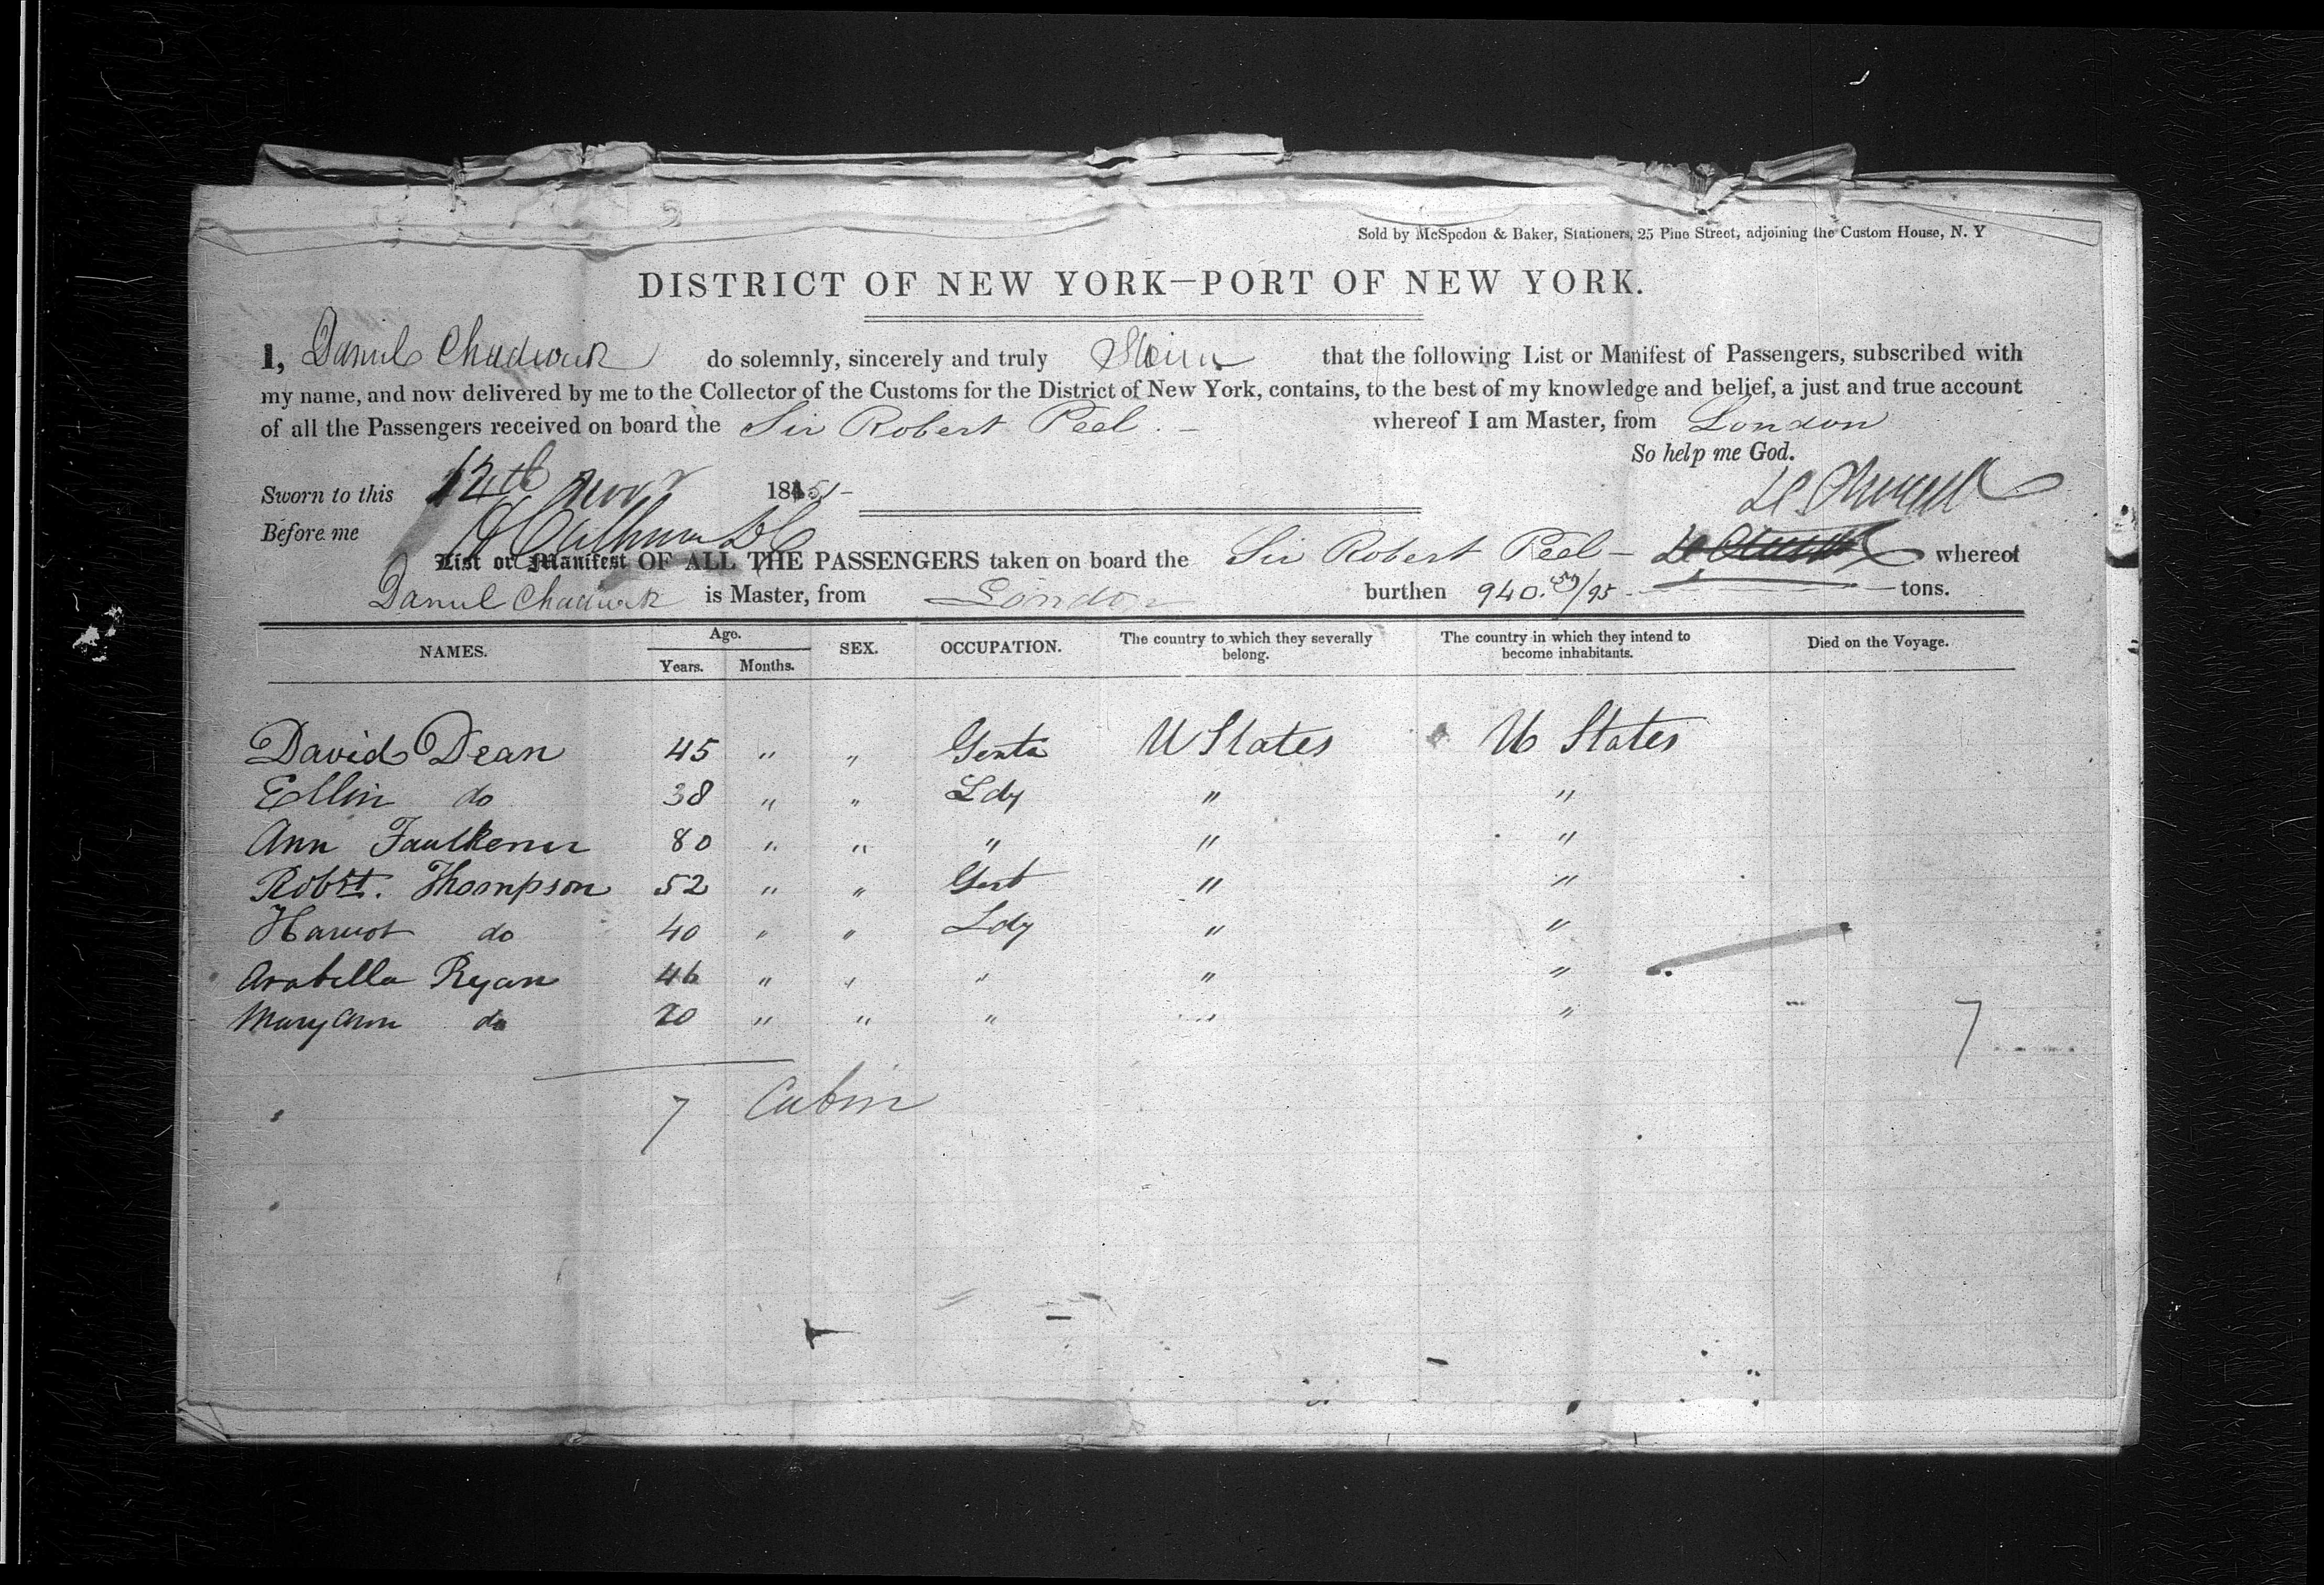 Sold by McSpedon & Baker, Stationers, 25 Pine Street, adjoining the Custom House, N. Y
DISTRICT OF NEW YORK—PORT OF NEW YORK.
I, Daniel Chadwick do solemnly, sincerely and truly Swear that the following List or Manifest of Passengers, subscribed with
my name, and now delivered by me to the Collector of the Customs for the District of New York, contains, to the best of my knowledge and belief, a just and true account
of all the Passengers received on board the Sir Robert Peel. - whereof I am Master, from London
So help me God.
Sworn to this 12th Novr 1851-
Before me
List or Manifest OF ALL THE PASSENGERS taken on board the Sir Robert Peel - whereof
Daniel Chadwick is Master, from London burthen 940. /95 tons.
NAMES. Age. Years. Months. SEX. OCCUPATION. The country to which they severally belong. The country in which they intend to become inhabitants. Died on the Voyage.
David Dean 45 " " Gent U States U States
Ellin do 38 " " Ldy " "
Ann Faulkener 80 " " " " "
Robrt. Thompson 52 " " Gent " "
Harriot do 40 " " Ldy " "
Arabella Ryan 46 " " " " "
Mary Ann do 20 " " " " "
7
7 Cabin